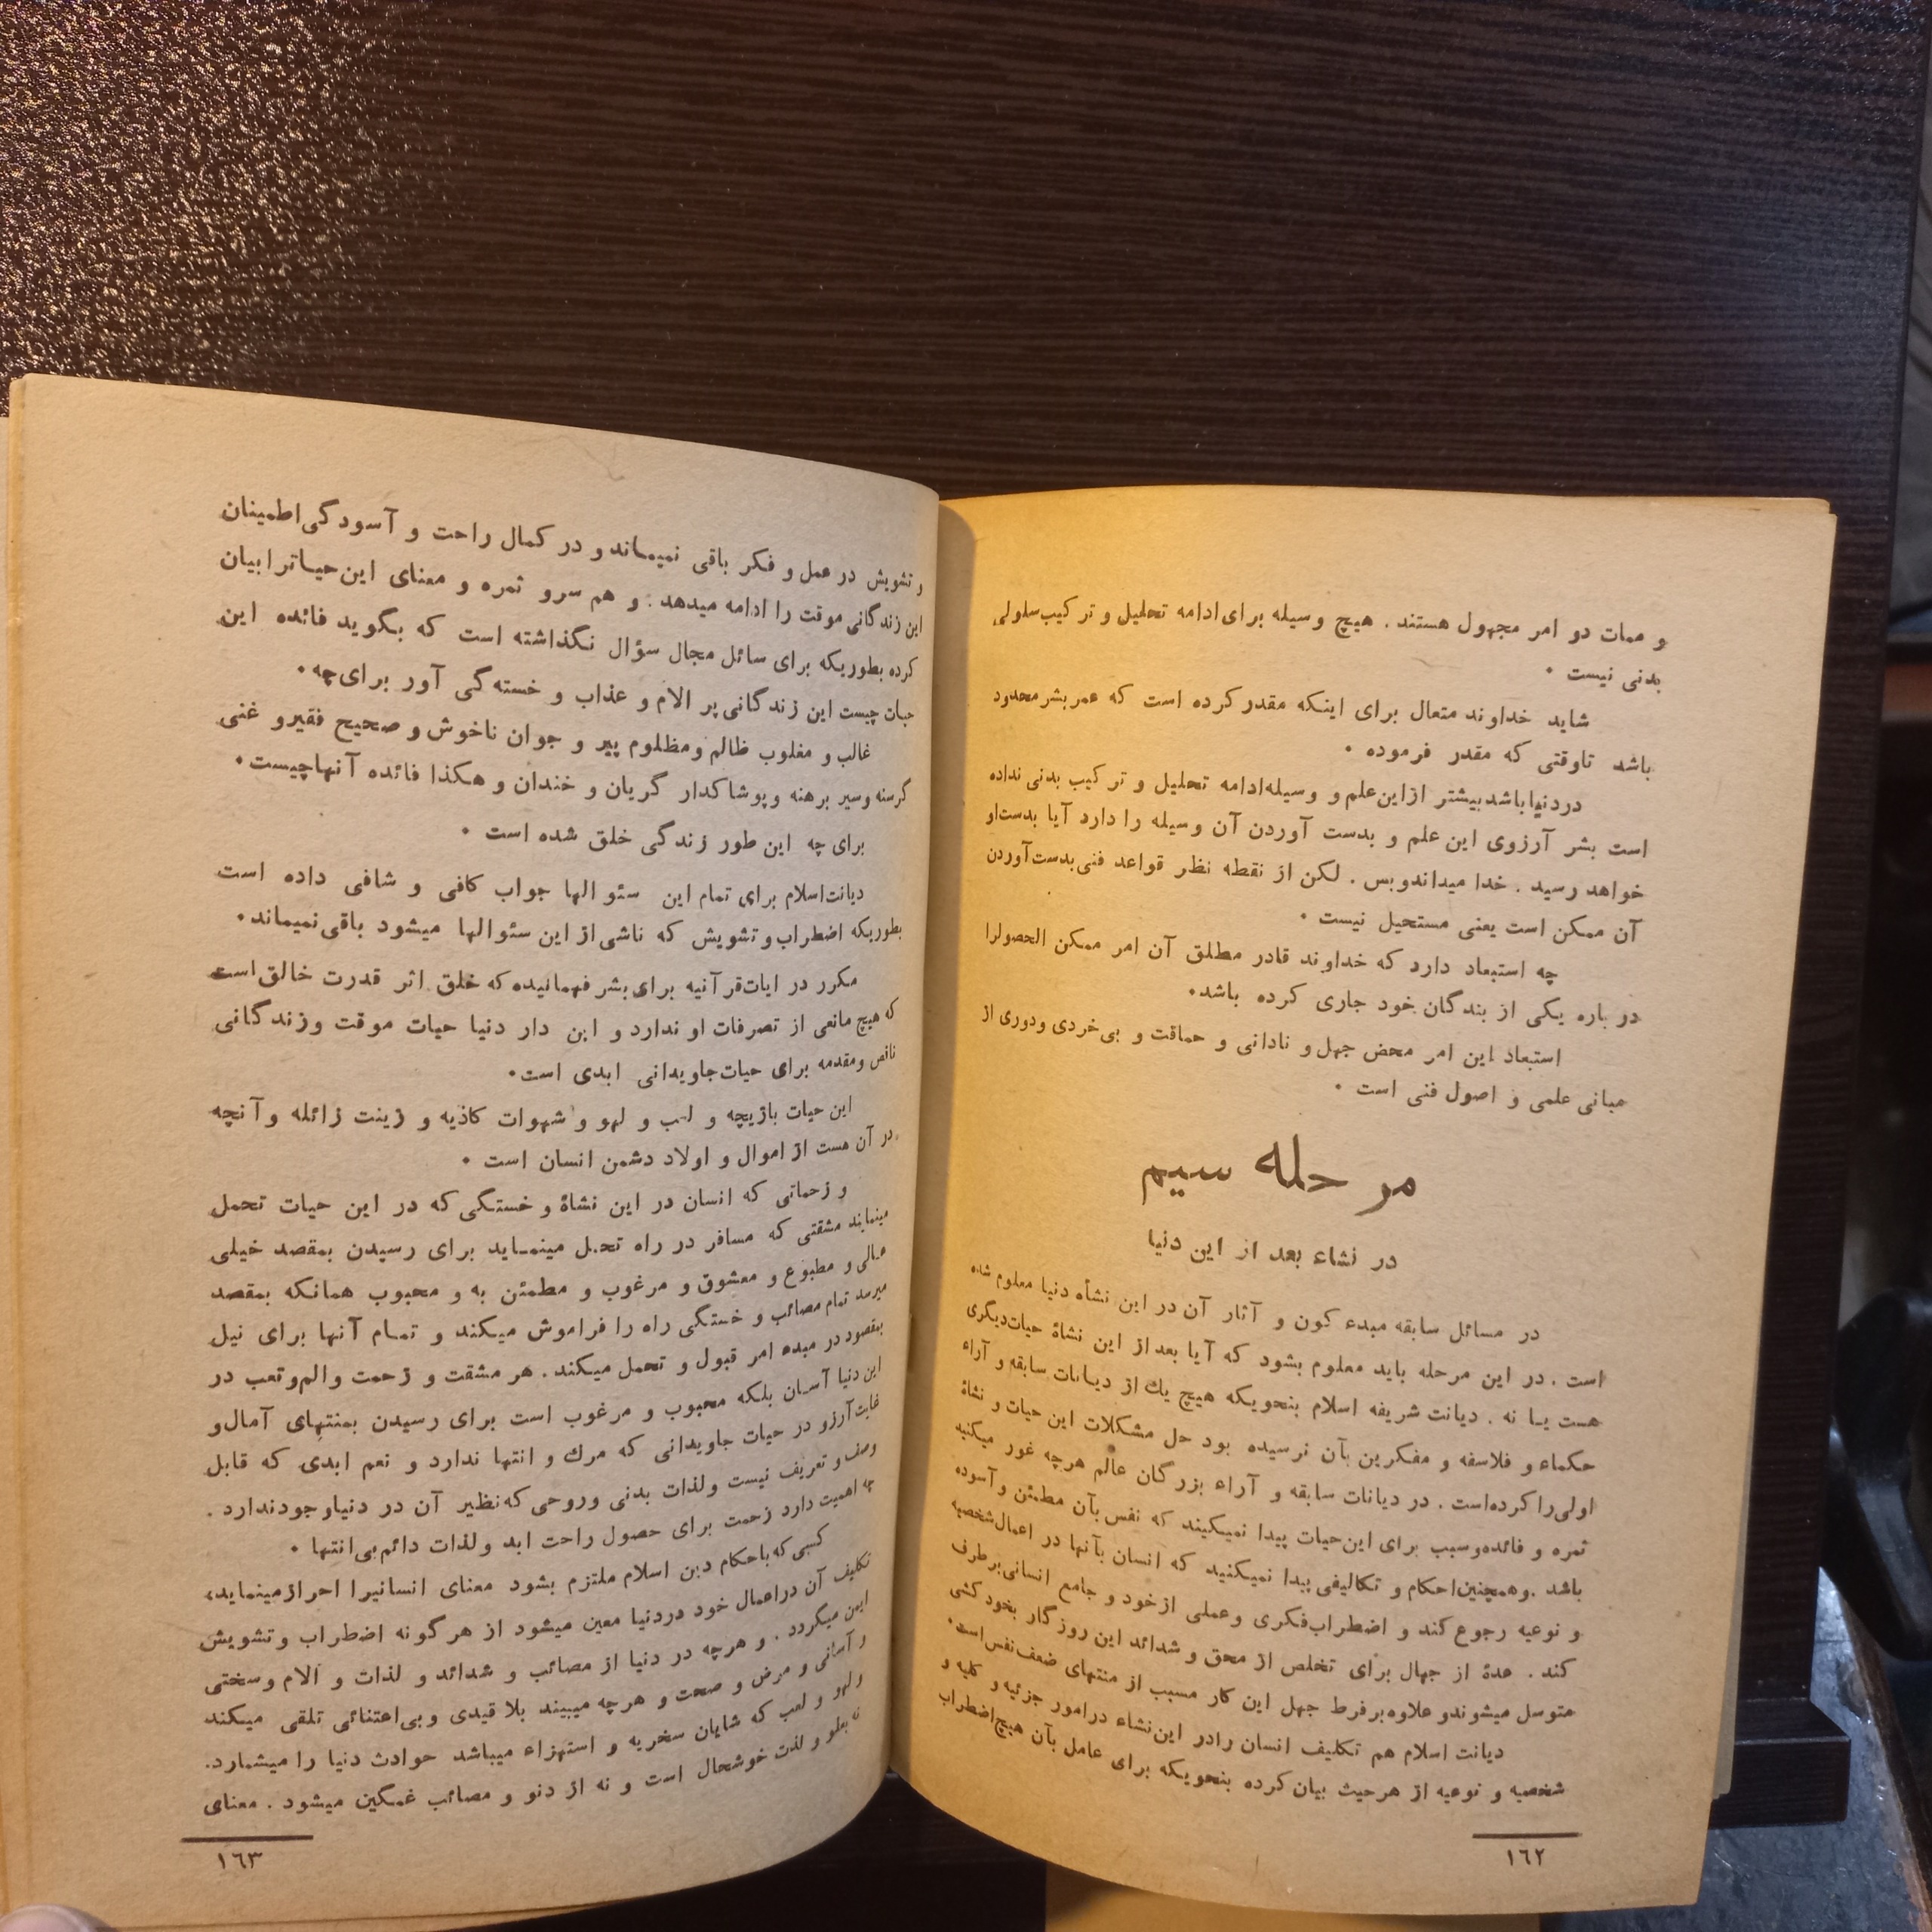 و ممات دو امر مجهول هستند . هیچ وسیله برای ادامه تحلیل و ترکیب سلولی
بدنی نیست .
شاید خداوند متعال برای اینکه مقدر کرده است که عمر بشر محدود
باشد تاوقتی که مقدر فرموده .
در دنیا باشد بیشتر از این علم و وسیله ادامه تحلیل و ترکیب بدنی نداده
است بشر آرزوی این علم و بدست آوردن آن وسیله را دارد آیا بدست او
خواهد رسید . خدا میداند وبس . لکن از نقطه نظر قواعد فنی بدست آوردن
آن ممکن است یعنی مستحیل نیست .
چه استبعاد دارد که خداوند قادر مطلق آن امر ممکن الحصولرا
در باره یکی از بندگان خود جاری کرده باشد .
استبعاد این امر محض جهل و نادانی و حماقت و بی خردی و دوری از
مبانی علمی و اصول فنی است .
مرحله سیم
در نشاء بعد از این دنیا
در مسائل سابقه مبدء کون و آثار آن در این نشأه دنیا معلوم شده
است . در این مرحله باید معلوم بشود که آیا بعد از این نشاۀ حیات دیگری
هست یا نه . دیانت شریفه اسلام بنحویکه هیچ یك از دیانات سابقه و آراء
حکماء و فلاسفه و مفکرین بآن نرسیده بود حل مشکلات این حیات و نشاۀ
اولی را کرده است . در دیانات سابقه و آراء بزرگان عالم هرچه غور میکنید
ثمره و فائده وسبب برای این حیات پیدا نمیکیند که نفس بآن مطمئن و آسوده
باشد . وهمچنین احکام و تکالیفی پیدا نمیکنید که انسان بآنها در اعمال شخصیه
و نوعیه رجوع کند و اضطراب فکری وعملی از خود و جامع انسانی بر طرف
کند . عدۀ از جهال برای تخلص از محق و شدائد این روزگار بخود کشی
متوسل میشوند و علاوه بر فرط جهل این کار مسبب از منتهای ضعف نفس است .
دیانت اسلام هم تکلیف انسان را در این نشاء در امور جزئیه و کلیه و
شخصیه و نوعیه از هر حیث بیان کرده بنحویکه برای عامل بآن هیچ اضطراب
١٦٢
و تشویش در عمل و فکر باقی نمیماند و در کمال راحت و آسودگی اطمینان
این زندگانی موقت را ادامه میدهد . و هم سر و ثمره و معنای این حیاترا بیان
کرده بطوریکه برای سائل مجال سؤال نگذاشته است که بگوید فائده این
حیات چیست این زندگانی پر الام و عذاب و خستهگی آور برای چه .
غالب و مغلوب ظالم ومظلوم پیر و جوان ناخوش و صحیح فقیر و غنی
گرسنه وسیر برهنه و پوشاکدار گریان و خندان و هکذا فائده آنها چیست .
برای چه این طور زندگی خلق شده است .
دیانت اسلام برای تمام این سئوالها جواب کافی و شافی داده است
بطوریکه اضطراب و تشویش که ناشی از این سئوالها میشود باقی نمیماند .
مکرر در ایات قرآنیه برای بشر فهمانیده که خلق اثر قدرت خالق است
که هیچ مانعی از تصرفات او ندارد و این دار دنیا حیات موقت و زندگانی
ناقص و مقدمه برای حیات جاویدانی ابدی است .
این حیات بازیچه و لعب و لهو و شهوات کاذیه و زینت زائله و آنچه
در آن هست از اموال و اولاد دشمن انسان است .
و زحماتی که انسان در این نشاۀ و خستگی که در این حیات تحمل
مینمایند مشقتی که مسافر در راه تحمل مینماید برای رسیدن بمقصد خیلی
عالی و مطبوع و معشوق و مرغوب و مطمئن به و محبوب همانکه بمقصد
میرسد تمام مصائب و خستگی راه را فراموش میکند و تمام آنها برای نیل
بمقصود در مبدء امر قبول و تحمل میکند . هر مشقت و زحمت و الم و تعب در
این دنیا آسان بلکه محبوب و مرغوب است برای رسیدن بمنتهای آمال و
غایت آرزو در حیات جاویدانی که مرك و انتها ندارد و نعم ابدی که قابل
وصف و تعریف نیست و لذات بدنی و روحی که نظیر آن در دنیا وجود ندارد .
چه اهمیت دارد زحمت برای حصول راحت ابد و لذات دائم بی انتها .
کسی که باحکام دین اسلام ملتزم بشود معنای انسانیرا احراز مینماید،
تکلیف آن در اعمال خود در دنیا معین میشود از هر گونه اضطراب و تشویش
ایمن میگردد . و هرچه در دنیا از مصائب و شدائد و لذات و آلام و سختی
و آسانی و مرض و صحت و هرچه میبیند بلا قیدی و بی اعتنائی تلقی میکند
و لهو و لعب که شایان سخریه و استهزاء میباشد حوادث دنیا را میشمارد.
نه بعلو و لذت خوشحال است و نه از دنو و مصائب غمگین میشود . معنای
١٦٣